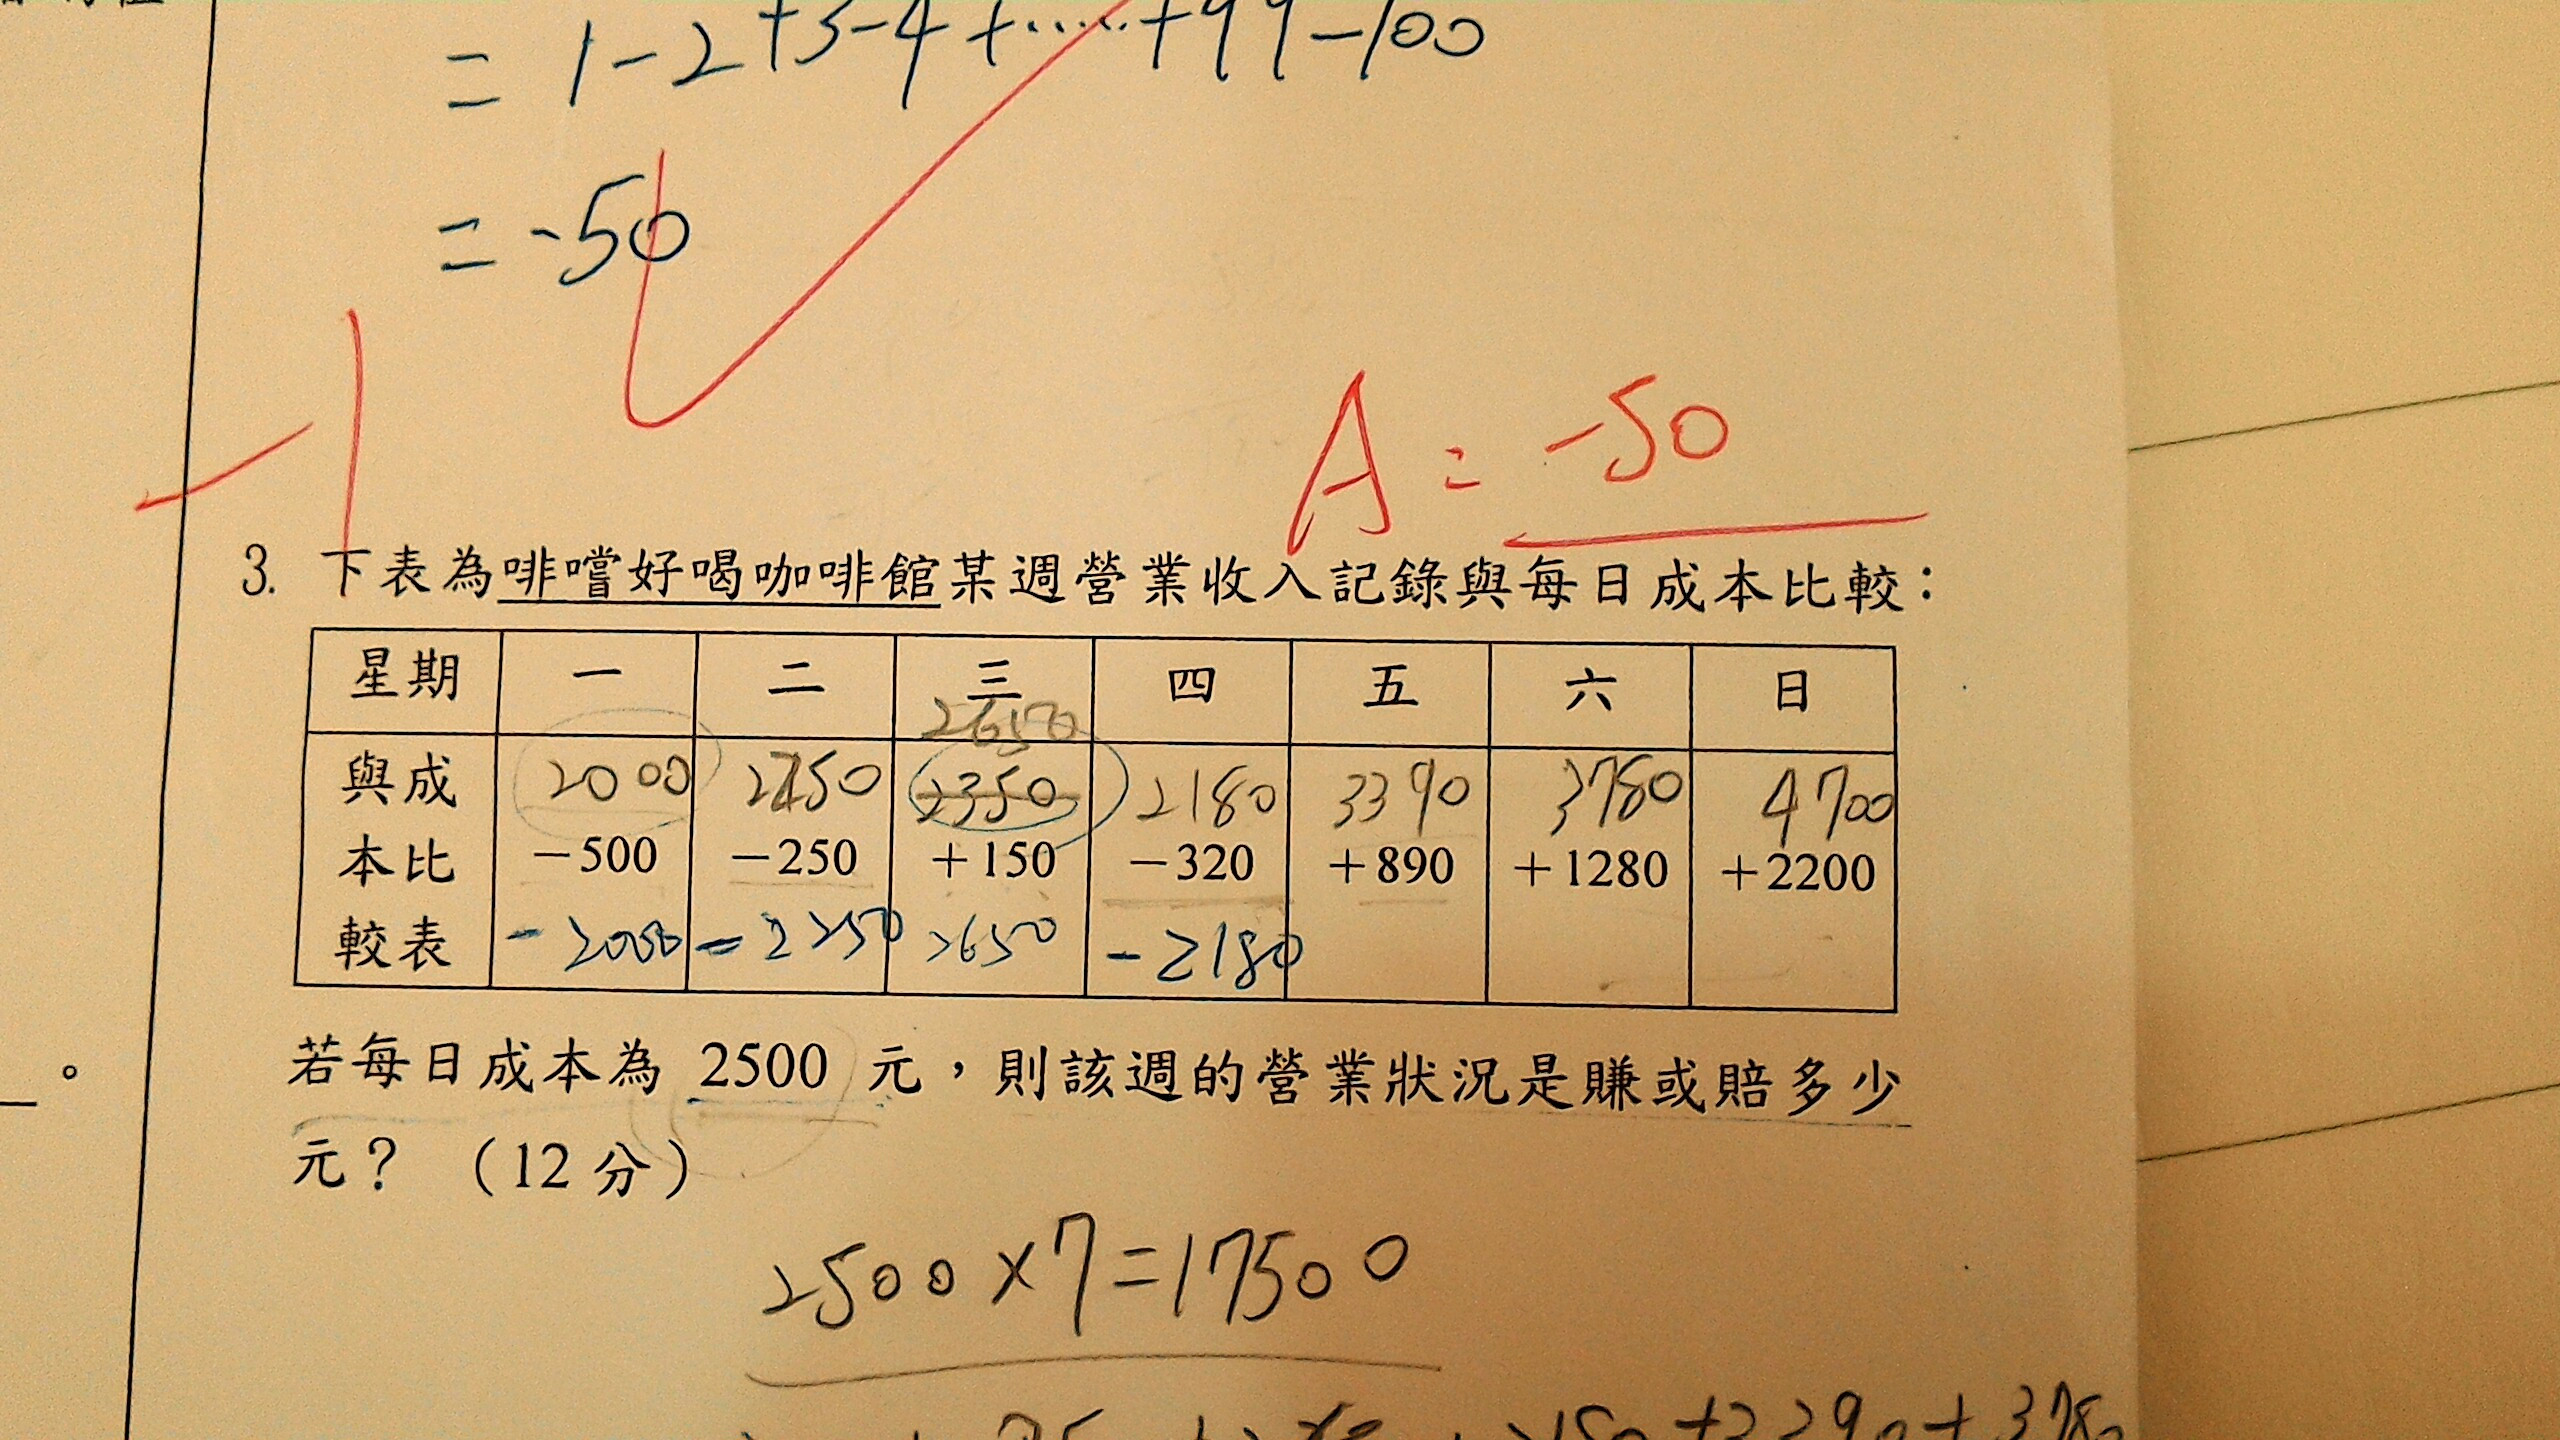 = 1-2+3-4+……+99-100
= -50
-1
A = -50
3. 下表為啡嚐好喝咖啡館某週營業收入記錄與每日成本比較：
星期 一 二 三 四 五 六 日
2650
與成 2000 2350 2180 3390 3780 4700
本比 -500 -250 +150 -320 +890 +1280 +2200
較表 -2000 -2250 2650 -2180
若每日成本為 2500 元，則該週的營業狀況是賺或賠多少
。
元？（12 分）
2500×7=17500
+3390+3780